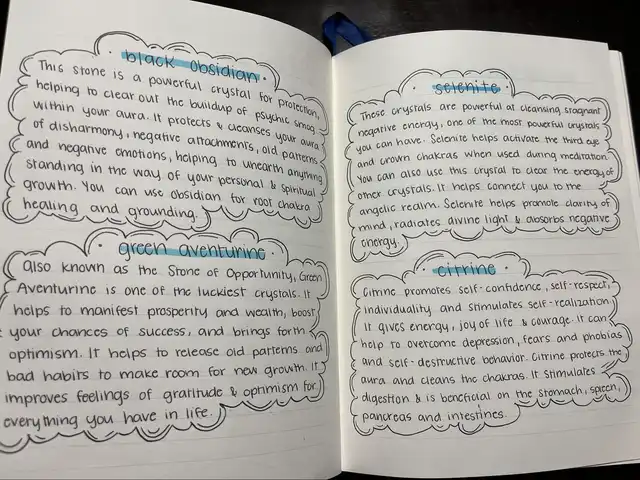 black obsidian
This stone is a powerful crystal for protection,
helping to clear out the buildup of psychic smog
within your aura. It protects & cleanses your aura
of disharmony, negative attachments, old patterns
and negative emotions, helping to unearth anything
standing in the way of your personal & spiritual
growth. You can use obsidian for root chakra
healing and grounding.
green aventurine
Also known as the Stone of Opportunity, Green
Aventurine is one of the luckiest crystals. It
helps to manifest prosperity and wealth, boost
your chances of success, and brings forth
optimism. It helps to release old patterns and
bad habits to make room for new growth. It
improves feelings of gratitude & optimism for
everything you have in life.
selenite
These crystals are powerful at cleansing stagnant
negative energy, one of the most powerful crystals
you can have. Selenite helps activate the third eye
and crown chakras when used during meditation.
You can also use this crystal to clear the energy of
other crystals. It helps connect you to the
angelic realm. Selenite helps promote clarity of
mind, radiates divine light & absorbs negative
energy.
citrine
Citrine promotes self-confidence, self-respect,
individuality and stimulates self-realization.
It gives energy, joy of life & courage. It can
help to overcome depression, fears and phobias
and self-destructive behavior. Citrine protects the
aura and cleans the chakras. It stimulates
digestion & is beneficial on the stomach, spleen,
pancreas and intestines.